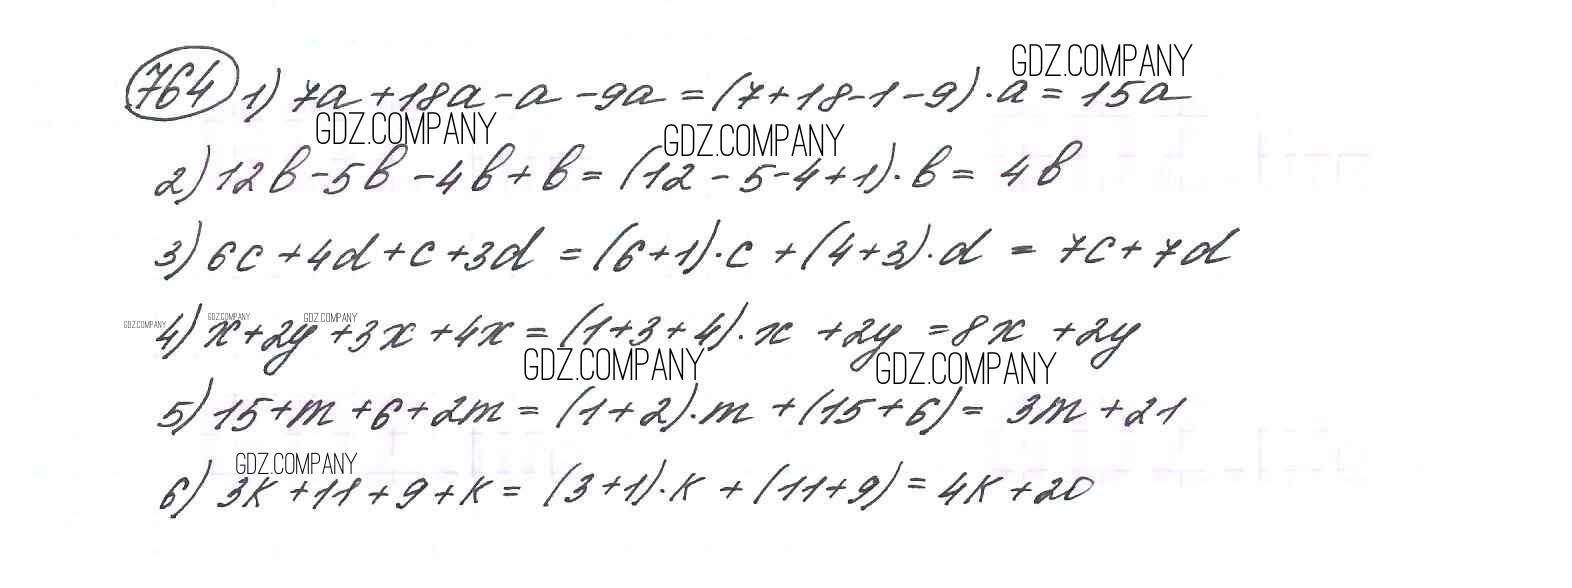 GDZ.COMPANY
764 1) 7a+18a-a-9a=(7+18-1-9)·a=15a
GDZ.COMPANY GDZ.COMPANY
2) 12b-5b-4b+b=(12-5-4+1)·b=4b
3) 6c+4d+c+3d=(6+1)·c+(4+3)·d=7c+7d
GDZ.COMPANY GDZ.COMPANY GDZ.COMPANY
4) x+2y+3x+4x=(1+3+4)·x+2y=8x+2y
GDZ.COMPANY GDZ.COMPANY
5) 15+m+6+2m=(1+2)·m+(15+6)=3m+21
GDZ.COMPANY
6) 3k+11+9+k=(3+1)·k+(11+9)=4k+20